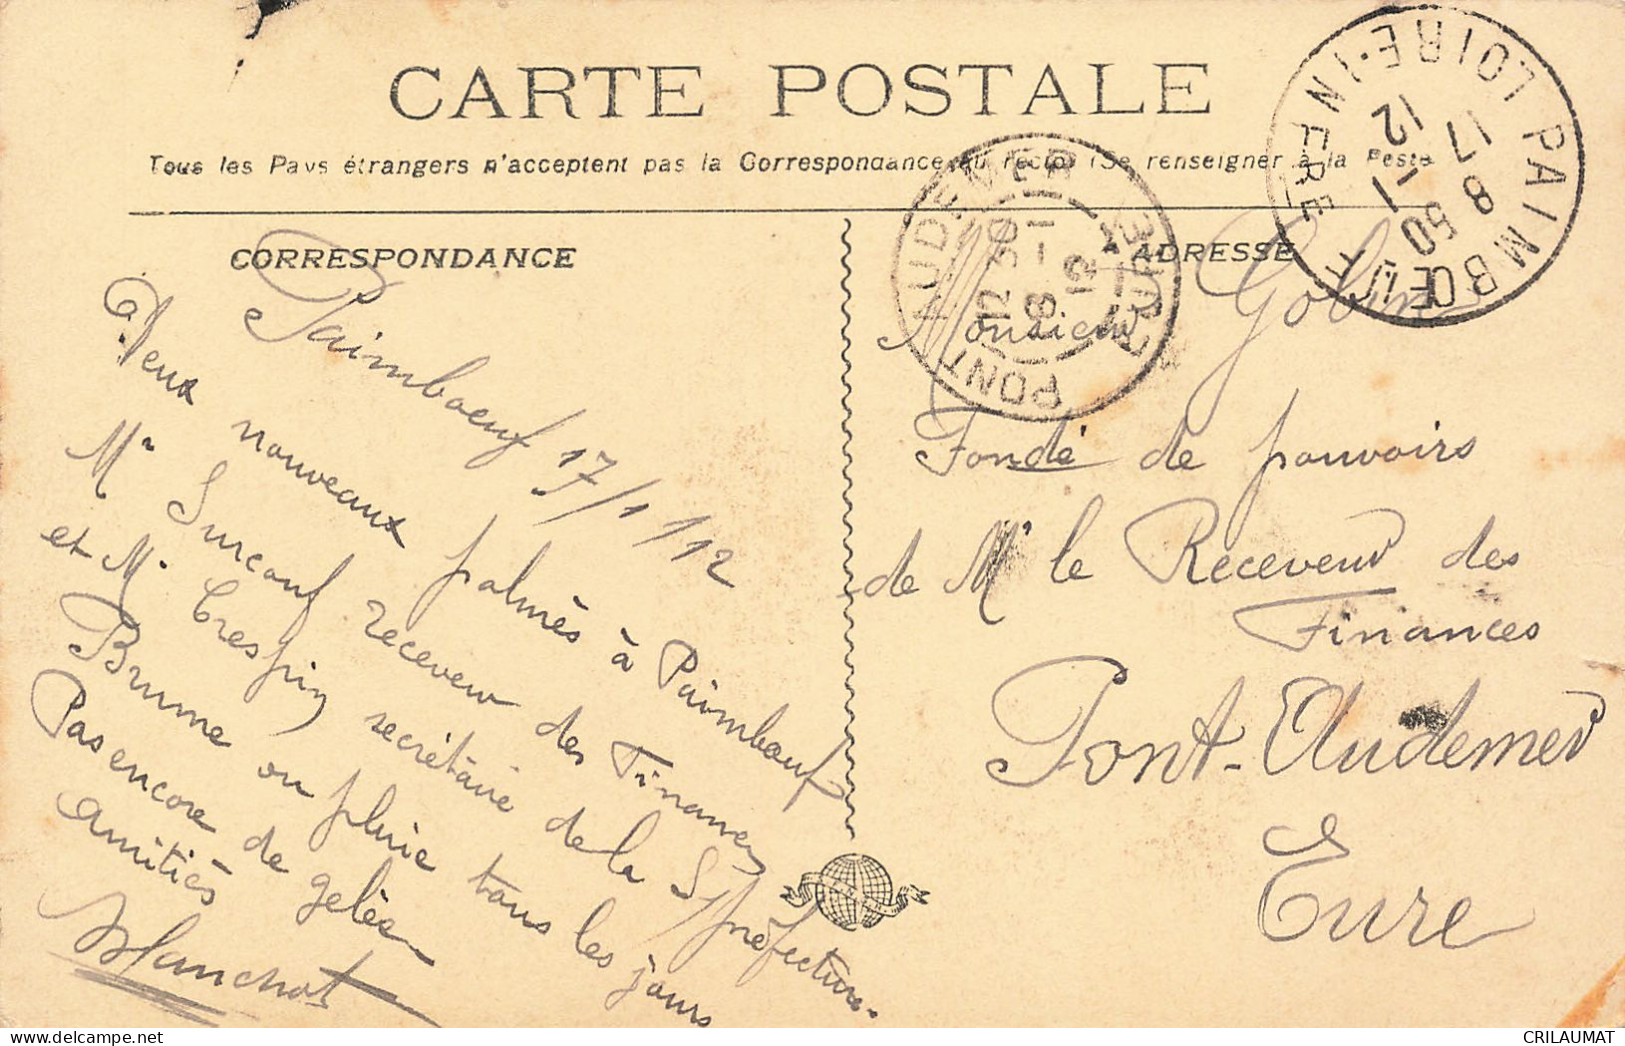 CARTE POSTALE
Tous les Pays étrangers n'acceptent pas la Correspondance au recto. (Se renseigner à la Poste
CORRESPONDANCE
ADRESSE
Paimboeuf 17/1/12
Deux nouveaux palmés à Paimboeuf
Mr Surcouf receveur des Finances
et Mr Crespin secrétaire de la S/préfecture.
Brume ou pluie tous les jours
Pas encore de gelée
amitiés
Blanchot
Monsieur Golin
Fondé de pouvoirs
de Mr le Receveur des
Finances
Pont-Audemer
Eure
PAIMBOEUF
LOIRE-INFERE
17 8 50
12 -1
PONT AUDEMER
EURE
12 50
18 -1
12
CRILAUMAT